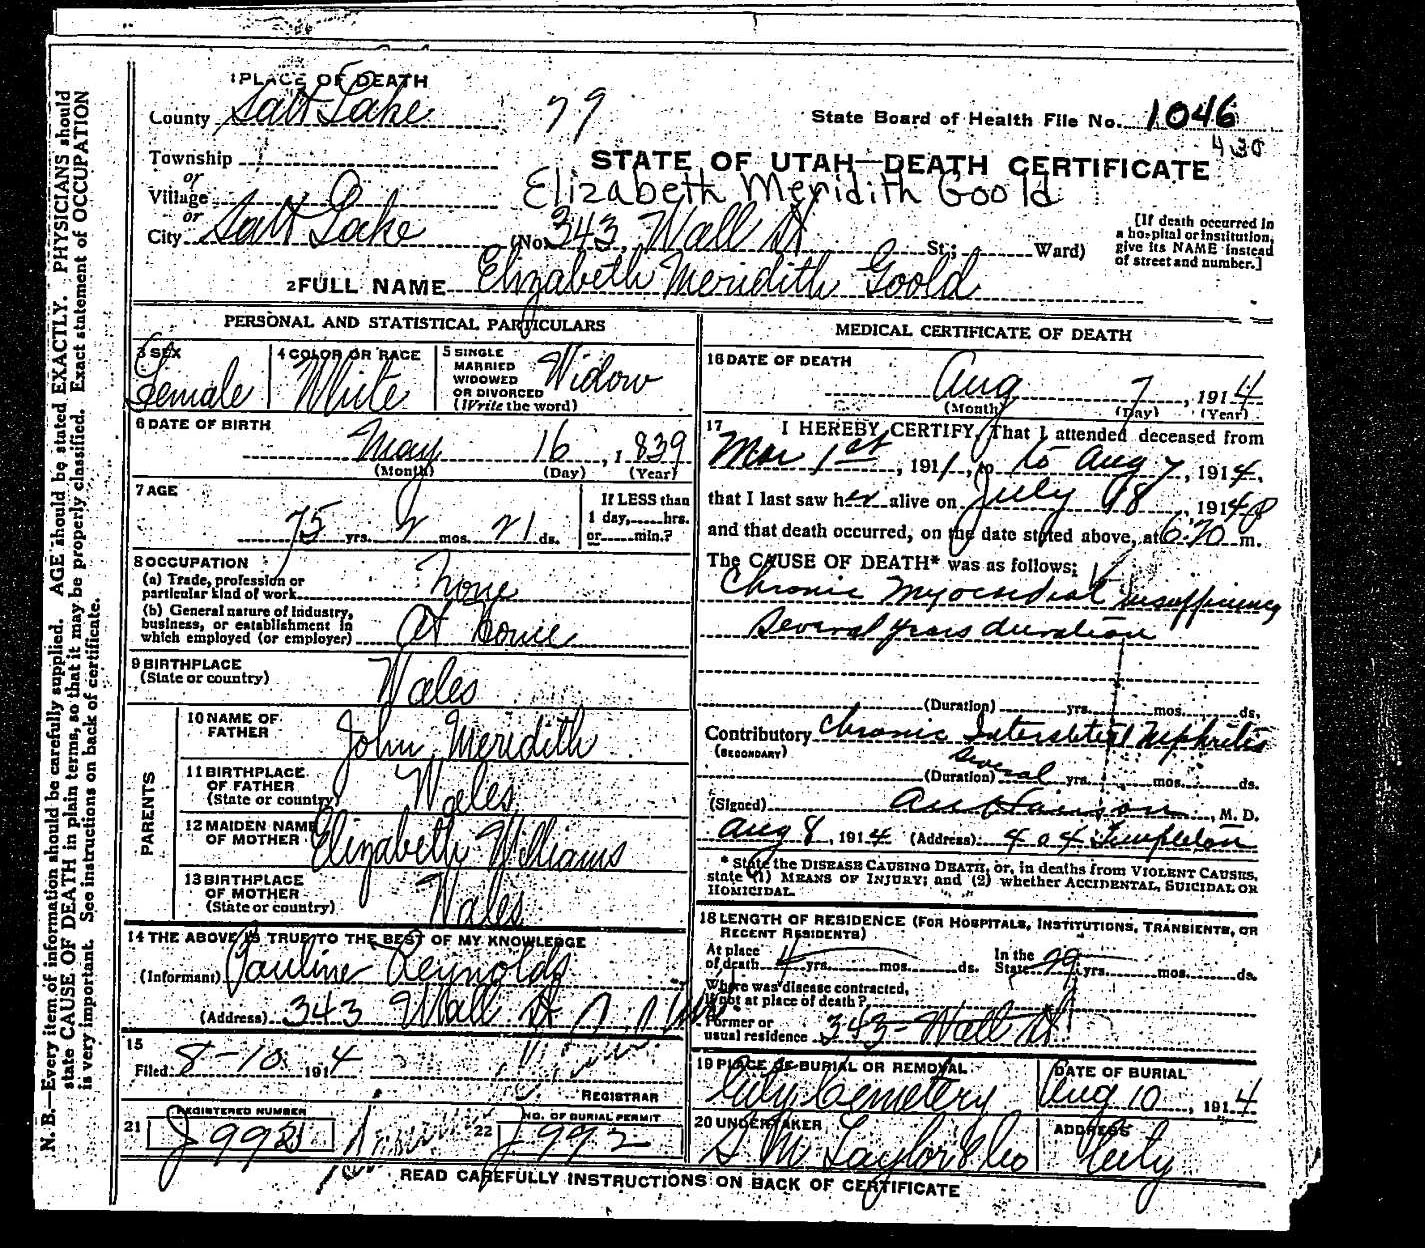 1 PLACE OF DEATH
County Salt Lake
79
State Board of Health File No. 1046
430
Township
or
Village
or
City Salt Lake
STATE OF UTAH—DEATH CERTIFICATE
Elizabeth Meridith Goold
(No. 343 Wall St St; Ward)
[If death occurred in
a hospital or institution,
give its NAME instead
of street and number.]
2 FULL NAME Elizabeth Meridith Goold
PERSONAL AND STATISTICAL PARTICULARS
3 SEX
Female
4 COLOR OR RACE
White
5 SINGLE
MARRIED
WIDOWED
OR DIVORCED
(Write the word)
Widow
6 DATE OF BIRTH
May 16, 1839
(Month) (Day) (Year)
7 AGE
75 yrs. 2 mos. 21 ds.
If LESS than
1 day, hrs.
or min.?
8 OCCUPATION
(a) Trade, profession or
particular kind of work None
(b) General nature of industry,
business, or establishment in
which employed (or employer) At home
9 BIRTHPLACE
(State or country) Wales
PARENTS
10 NAME OF
FATHER John Meridith
11 BIRTHPLACE
OF FATHER
(State or country) Wales
12 MAIDEN NAME
OF MOTHER Elizabeth Williams
13 BIRTHPLACE
OF MOTHER
(State or country) Wales
14 THE ABOVE IS TRUE TO THE BEST OF MY KNOWLEDGE
(Informant) Pauline Reynolds
(Address) 343 Wall St
15
Filed 8-10 1914
REGISTRAR
21 REGISTERED NUMBER
22 NO. OF BURIAL PERMIT
J 992
MEDICAL CERTIFICATE OF DEATH
16 DATE OF DEATH
Aug 7, 1914
(Month) (Day) (Year)
17 I HEREBY CERTIFY, That I attended deceased from
Mar 1st, 1911, to to Aug 7, 1914,
that I last saw her alive on July 18, 1914
and that death occurred, on the date stated above, at 6:20 m.
The CAUSE OF DEATH* was as follows:
Chronic Myocardial insufficiency
Several years duration
(Duration) yrs. mos. ds.
Contributory Chronic Interstitial Nephritis
(SECONDARY)
(Duration) Several yrs. mos. ds.
(Signed) M. D.
Aug 8, 1914 (Address) 404 Templeton
* State the DISEASE CAUSING DEATH, or, in deaths from VIOLENT CAUSES,
state (1) MEANS OF INJURY; and (2) whether ACCIDENTAL, SUICIDAL OR
HOMICIDAL.
18 LENGTH OF RESIDENCE (FOR HOSPITALS, INSTITUTIONS, TRANSIENTS, OR
RECENT RESIDENTS)
At place
of death 4 yrs. mos. ds.
In the
State yrs. mos. ds.
Where was disease contracted,
if not at place of death?
Former or
usual residence 343-Wall St
19 PLACE OF BURIAL OR REMOVAL
City Cemetery
DATE OF BURIAL
Aug 10, 1914
20 UNDERTAKER
S M Taylor & Co
ADDRESS
City
READ CAREFULLY INSTRUCTIONS ON BACK OF CERTIFICATE
N. B.—Every item of information should be carefully supplied. AGE should be stated EXACTLY. PHYSICIANS should
state CAUSE OF DEATH in plain terms, so that it may be properly classified. Exact statement of OCCUPATION
is very important. See instructions on back of certificate.